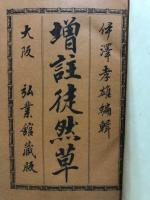 伊澤孝雄編輯
增註徒然草
大阪 弘業館藏版